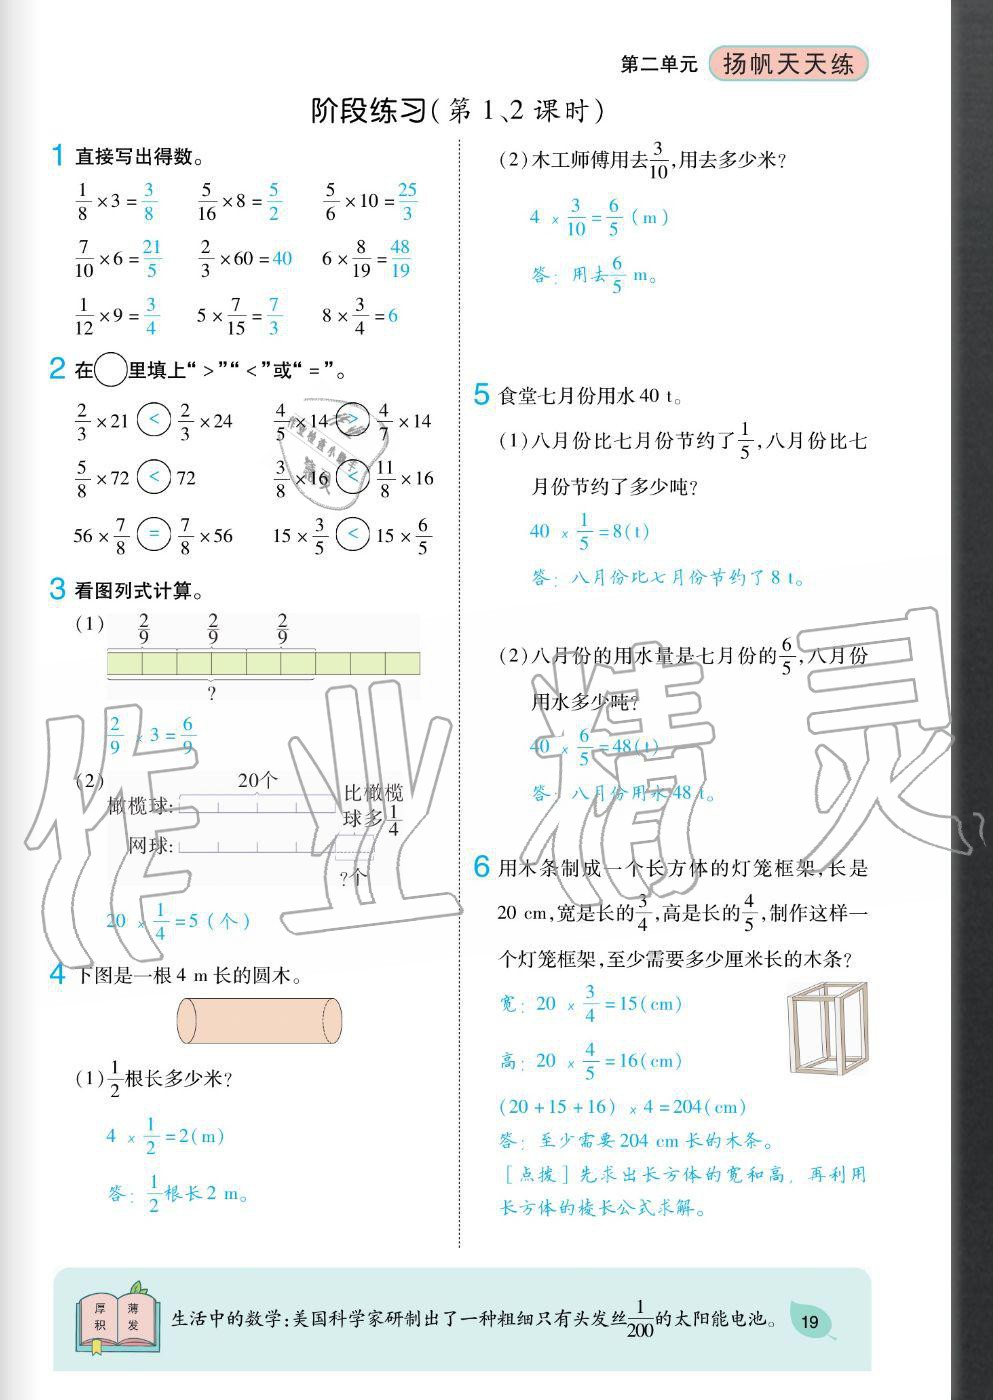 第二单元 扬帆天天练
阶段练习(第1、2课时)
1 直接写出得数。
1/8×3=3/8 5/16×8=5/2 5/6×10=25/3
7/10×6=21/5 2/3×60=40 6×8/19=48/19
1/12×9=3/4 5×7/15=7/3 8×3/4=6
2 在○里填上“>”“<”或“=”。
2/3×21 < 2/3×24 4/5×14 > 4/7×14
5/8×72 < 72 3/8×16 < 11/8×16
56×7/8 = 7/8×56 15×3/5 < 15×6/5
3 看图列式计算。
(1) 2/9 2/9 2/9
?
2/9×3=6/9
(2) 20个
橄榄球:
比橄榄
球多1/4
网球:
?个
20×1/4=5(个)
4 下图是一根4 m长的圆木。
(1)1/2根长多少米?
4×1/2=2(m)
答:1/2根长2 m。
(2)木工师傅用去3/10,用去多少米?
4×3/10=6/5(m)
答:用去6/5 m。
5 食堂七月份用水40 t。
(1)八月份比七月份节约了1/5,八月份比七
月份节约了多少吨?
40×1/5=8(t)
答:八月份比七月份节约了8 t。
(2)八月份的用水量是七月份的6/5,八月份
用水多少吨?
40×6/5=48(t)
答:八月份用水48 t。
6 用木条制成一个长方体的灯笼框架,长是
20 cm,宽是长的3/4,高是长的4/5,制作这样一
个灯笼框架,至少需要多少厘米长的木条?
宽:20×3/4=15(cm)
高:20×4/5=16(cm)
(20+15+16)×4=204(cm)
答:至少需要204 cm长的木条。
[点拨]先求出长方体的宽和高,再利用
长方体的棱长公式求解。
厚积 薄发
生活中的数学:美国科学家研制出了一种粗细只有头发丝1/200的太阳能电池。
19
作业精灵